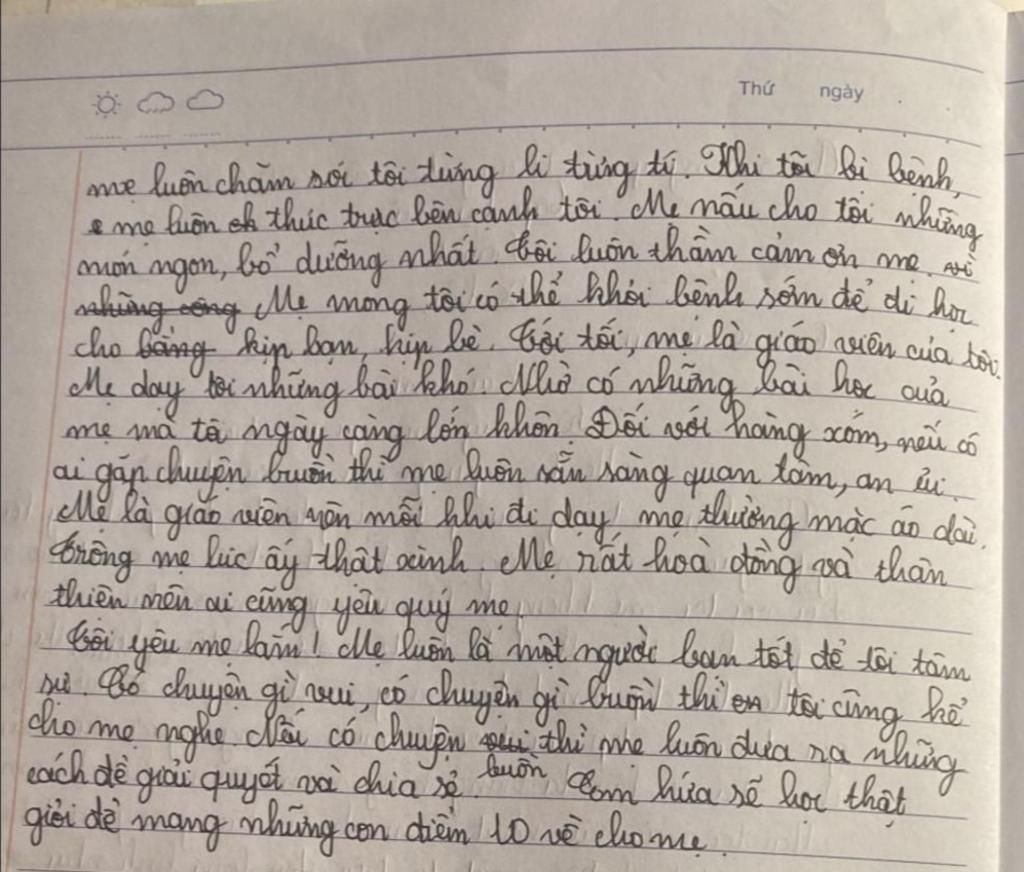 Thứ ngày
mẹ luôn chăm sóc tôi từng li từng tí. Khi tôi bị bệnh,
mẹ luôn thức trực bên cạnh tôi. Mẹ nấu cho tôi những
món ngon, bổ dưỡng nhất. Tôi luôn thầm cảm ơn mẹ. vì
những công Mẹ mong tôi có thể khỏi bệnh sớm để đi học
cho bằng kịp bạn, kịp bè. Tối tối, mẹ là giáo viên của tôi.
Mẹ dạy tôi những bài khó. Nhờ có những bài học của
mẹ mà tô ngày càng lớn khôn. Đối với hàng xóm, nếu có
ai gặp chuyện buồn thì mẹ luôn sẵn sàng quan tâm, an ủi.
Mẹ là giáo viên nên mỗi khi đi dạy mẹ thường mặc áo dài.
Trông mẹ lúc ấy thật xinh. Mẹ rất hoà đồng và thân
thiện nên ai cũng yêu quý mẹ.
Tôi yêu mẹ lắm! Mẹ luôn là một người bạn tốt để tôi tâm
sự. Có chuyện gì vui, có chuyện gì buồn thì em tôi cũng kể
cho mẹ nghe. Nếu có chuyện vui thì mẹ luôn đưa ra những
buồn
cách để giải quyết và chia sẻ. Con hứa sẽ học thật
giỏi để mang những con điểm 10 về cho mẹ.